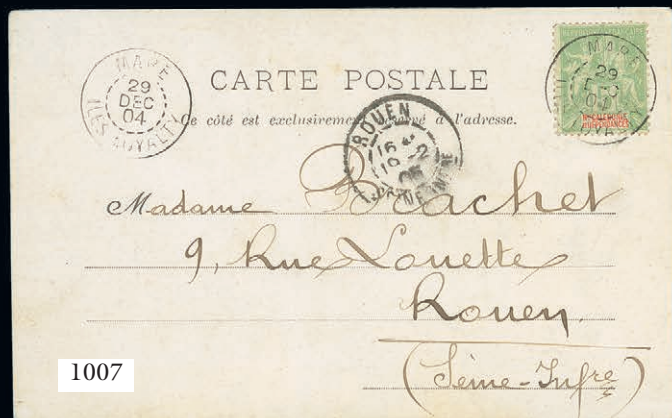 MARE
29
DEC
04
ILES LOYALTY
CARTE POSTALE
Ce côté est exclusivement réservé à l'adresse.
ROUEN
MARE
29
04
Madame Brachet
9, Rue Louette
Rouen
(Seine-Infre)
1007